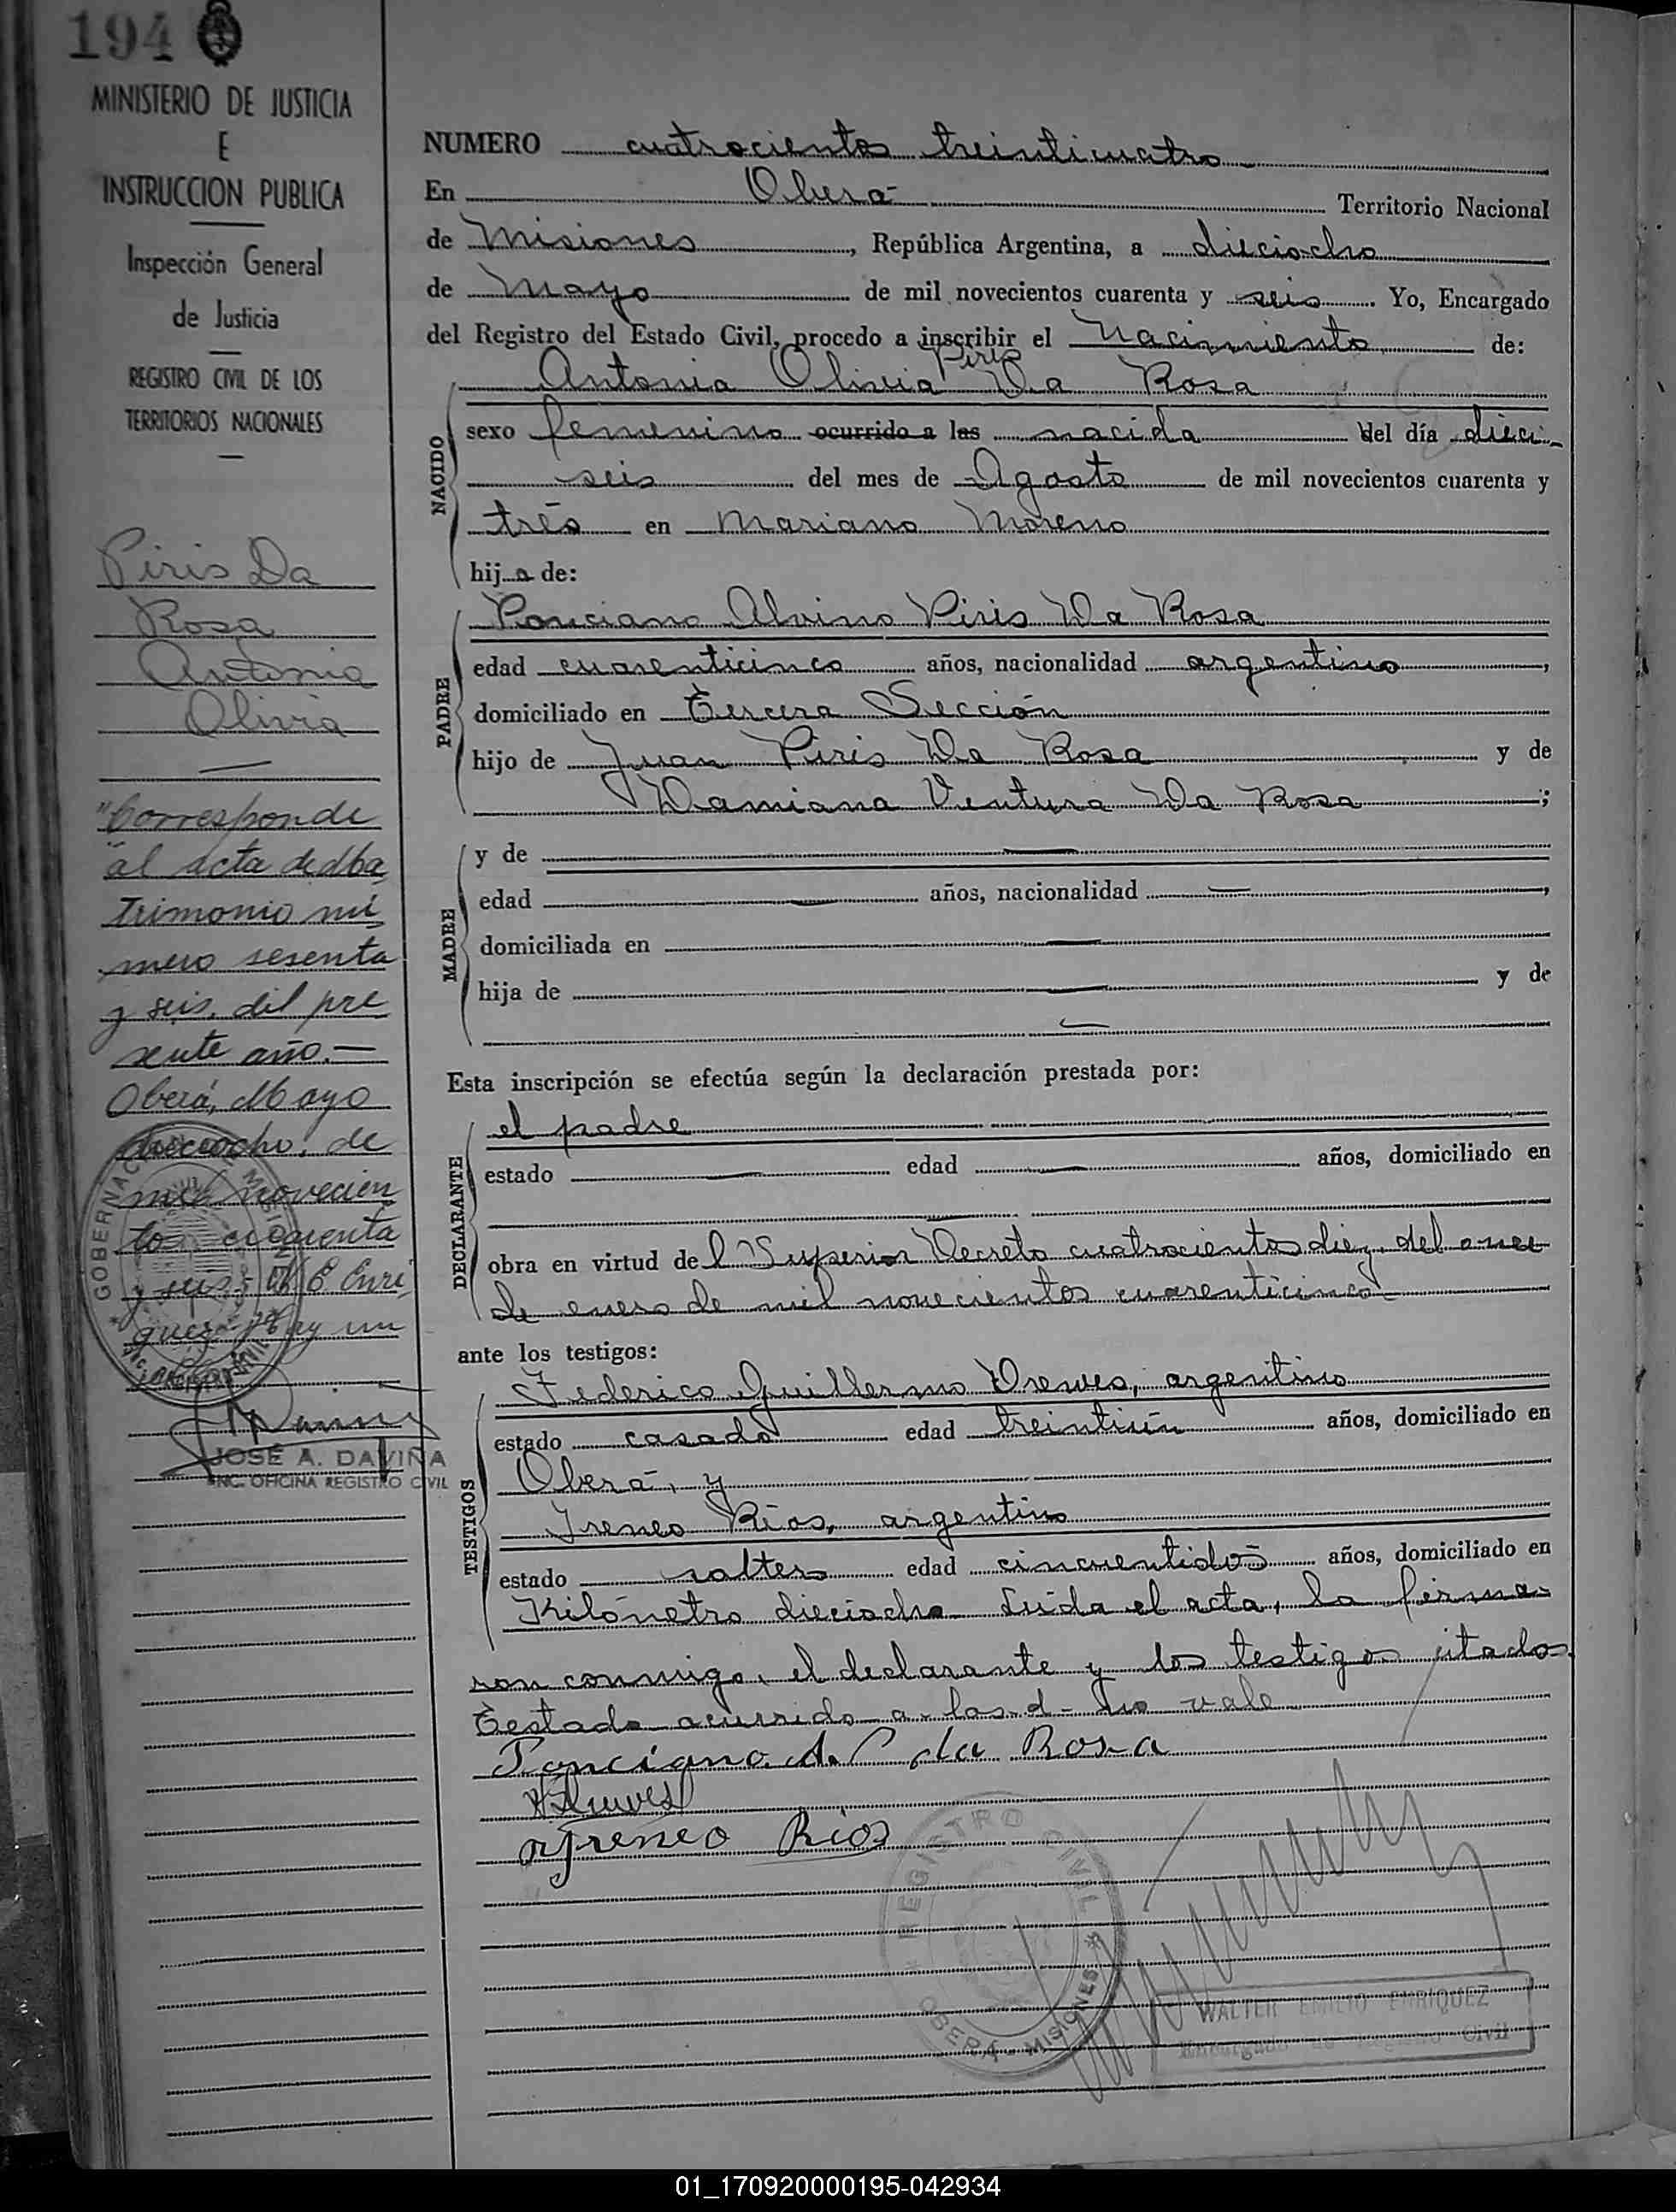 194
MINISTERIO DE JUSTICIA
E
INSTRUCCION PUBLICA
Inspección General
de Justicia
REGISTRO CIVIL DE LOS
TERRITORIOS NACIONALES
Piris Da
Rosa
Antonia
Olivia
"Corresponde
al acta de Ma
trimonio nú
mero sesenta
y seis, del pre
sente año.—
Oberá, Mayo
dieciocho, de
mil novecien
tos cuarenta
y seis.- W E Enri
quez
JOSÉ A. DAVIÑA
ENC. OFICINA REGISTRO CIVIL
NUMERO cuatrocientos treinticuatro
En Oberá Territorio Nacional
de Misiones, República Argentina, a dieciocho
de Mayo de mil novecientos cuarenta y seis. Yo, Encargado
del Registro del Estado Civil, procedo a inscribir el Nacimiento de:
Piris
Antonia Olivia Da Rosa
NACIDO
sexo femenino ocurrido a las nacida del día dieci-
seis del mes de Agosto de mil novecientos cuarenta y
trés en Mariano Moreno
hija de:
PADRE
Ponciano Alvino Piris Da Rosa
edad cuarenticinco años, nacionalidad argentino,
domiciliado en Tercera Sección
hijo de Juan Piris Da Rosa y de
Damiana Ventura Da Rosa ;
MADRE
y de
edad años, nacionalidad ,
domiciliada en
hija de y de
Esta inscripción se efectúa según la declaración prestada por:
DECLARANTE
el padre
estado edad años, domiciliado en
obra en virtud del Superior Decreto cuatrocientos diez, del once
de enero de mil novecientos cuarenticinco
ante los testigos:
TESTIGOS
Federico Guillermo Drewes, argentino
estado casado edad treintiún años, domiciliado en
Oberá, y
Ireneo Rios, argentino
estado soltero edad cincuentidós años, domiciliado en
Kilómetro dieciocho Leida el acta, la firma-
ron conmigo, el declarante y los testigos citados.
Testado ocurrido a las d- no vale
Ponciano A. P. da Rosa
Drewes
Ireneo Rios
REGISTRO CIVIL
OBERÁ - MISIONES
WALTER EMILIO ENRIQUEZ
Encargado de Registro Civil
01_170920000195-042934